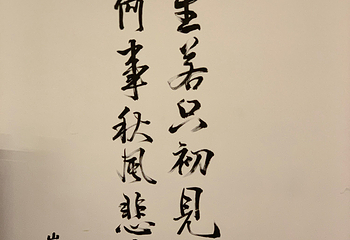 生若只初見
何事秋風悲